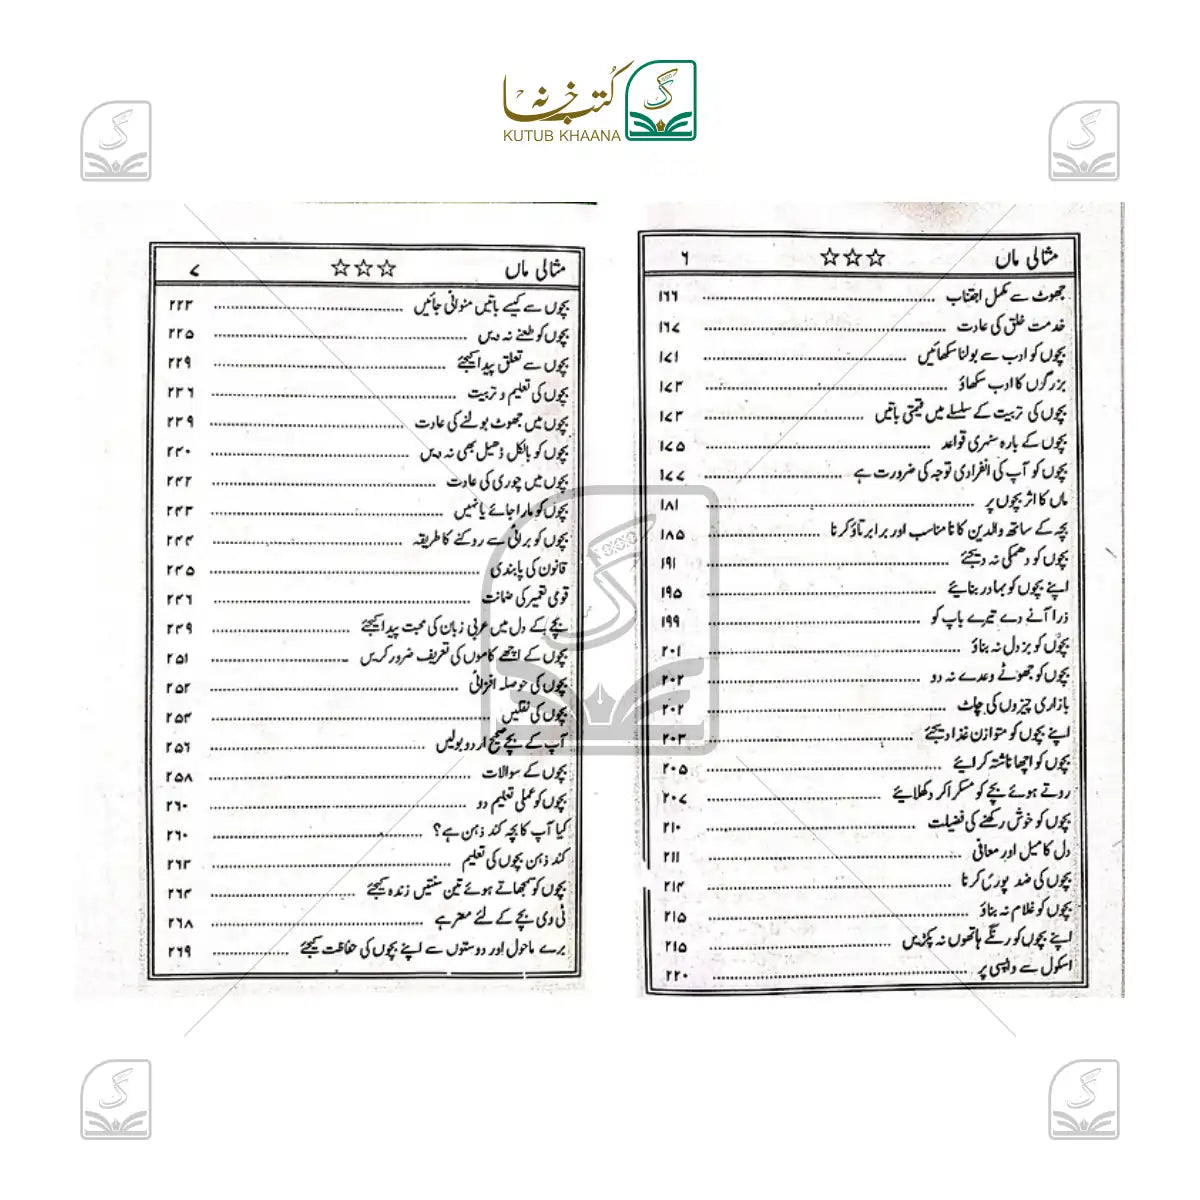 کتب خانہ
KUTUB KHAANA
مثالی ماں ☆☆☆ ۶
جھوٹ سے مکمل اجتناب ۱۶۶
خدمت خلق کی عادت ۱۶۷
بچوں کو ادب سے بولنا سکھائیں ۱۷۱
بزرگوں کا ادب سکھاؤ ۱۷۳
بچوں کی تربیت کے سلسلے میں قیمتی باتیں ۱۷۳
بچوں کے بارہ سنہری قواعد ۱۷۵
بچوں کو آپ کی انفرادی توجہ کی ضرورت ہے ۱۷۷
ماں کا اثر بچوں پر ۱۸۱
بچہ کے ساتھ والدین کا نامناسب اور برا برتاؤ کرنا ۱۸۵
بچوں کو دھمکی نہ دیجئے ۱۹۱
اپنے بچوں کو بہادر بنائیے ۱۹۵
ذرا آنے دے تیرے باپ کو ۱۹۹
بچوں کو بزدل نہ بناؤ ۲۰۱
بچوں کو جھوٹے وعدے نہ دو ۲۰۲
بازاری چیزوں کی چاٹ ۲۰۲
اپنے بچوں کو متوازن غذا دیجئے ۲۰۳
بچوں کو اچھا ناشتہ کرائیے ۲۰۵
روتے ہوئے بچے کو مسکرا کر دکھلائیے ۲۰۷
بچوں کو خوش رکھنے کی فضیلت ۲۱۰
دل کا میل اور معافی ۲۱۱
بچوں کی ضد پوری کرنا ۲۱۴
بچوں کو غلام نہ بناؤ ۲۱۵
اپنے بچوں کو رنگے ہاتھوں نہ پکڑیں ۲۱۵
اسکول سے واپسی پر ۲۲۰
مثالی ماں ☆☆☆ ۷
بچوں سے کیسے باتیں منوائی جائیں ۲۲۳
بچوں کو طعنے نہ دیں ۲۲۵
بچوں سے تعلق پیدا کیجئے ۲۲۹
بچوں کی تعلیم و تربیت ۲۳۶
بچوں میں جھوٹ بولنے کی عادت ۲۳۹
بچوں کو بالکل ڈھیل بھی نہ دیں ۲۴۰
بچوں میں چوری کی عادت ۲۴۲
بچوں کو مارا جائے یا نہیں ۲۴۳
بچوں کو برائی سے روکنے کا طریقہ ۲۴۴
قانون کی پابندی ۲۴۵
قومی تعمیر کی ضمانت ۲۴۶
بچے کے دل میں عربی زبان کی محبت پیدا کیجئے ۲۴۹
بچوں کے اچھے کاموں کی تعریف ضرور کریں ۲۵۱
بچوں کی حوصلہ افزائی ۲۵۲
بچوں کی نقلیں ۲۵۴
آپ کے بچے صحیح اردو بولیں ۲۵۶
بچوں کے سوالات ۲۵۸
بچوں کو عملی تعلیم دو ۲۶۰
کیا آپ کا بچہ کند ذہن ہے؟ ۲۶۰
کند ذہن بچوں کی تعلیم ۲۶۳
بچوں کو سمجھاتے ہوئے تین سنتیں زندہ کیجئے ۲۶۴
ٹی وی بچے کے لئے مضر ہے ۲۶۸
برے ماحول اور دوستوں سے اپنے بچوں کی حفاظت کیجئے ۲۶۹